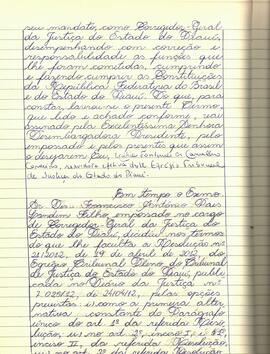 seu mandato, como Corregedor-Geral
da Justiça do Estado do Piauí,
desempenhando com correção e
responsabilidade as funções que
lhe foram cometidas, cumprindo
e fazendo cumprir as Constituições
da República Federativa do Brasil
e do Estado do Piauí. Do que, para
constar, lavrou-se o presente Termo,
que lido e achado conforme, vai
assinado pela Excelentíssima Senhora
Desembargadora Presidente, pelo
empossado e pelos presentes que assim
o desejarem. Eu,
de Justiça do Estado do Piauí.
Em tempo: o Exmo.
Sr. Des. Francisco Antônio Paes
Landim Filho, empossado no cargo
de Corregedor-Geral da Justiça do
Estado do Piauí, decidiu, nos termos
do que lhe faculta a Resolução nº
21/2012, de 19 de abril de 2012, do
Egrégio Tribunal Pleno do Tribunal
de Justiça do Estado do Piauí, publi-
cada no Diário da Justiça nº
de 24/04/12, pelas opções
previstas como a primeira alter-
nativa constante do Parágrafo
único do art. 1º da referida Reso-
lução,
inciso II, da referida Resolução,